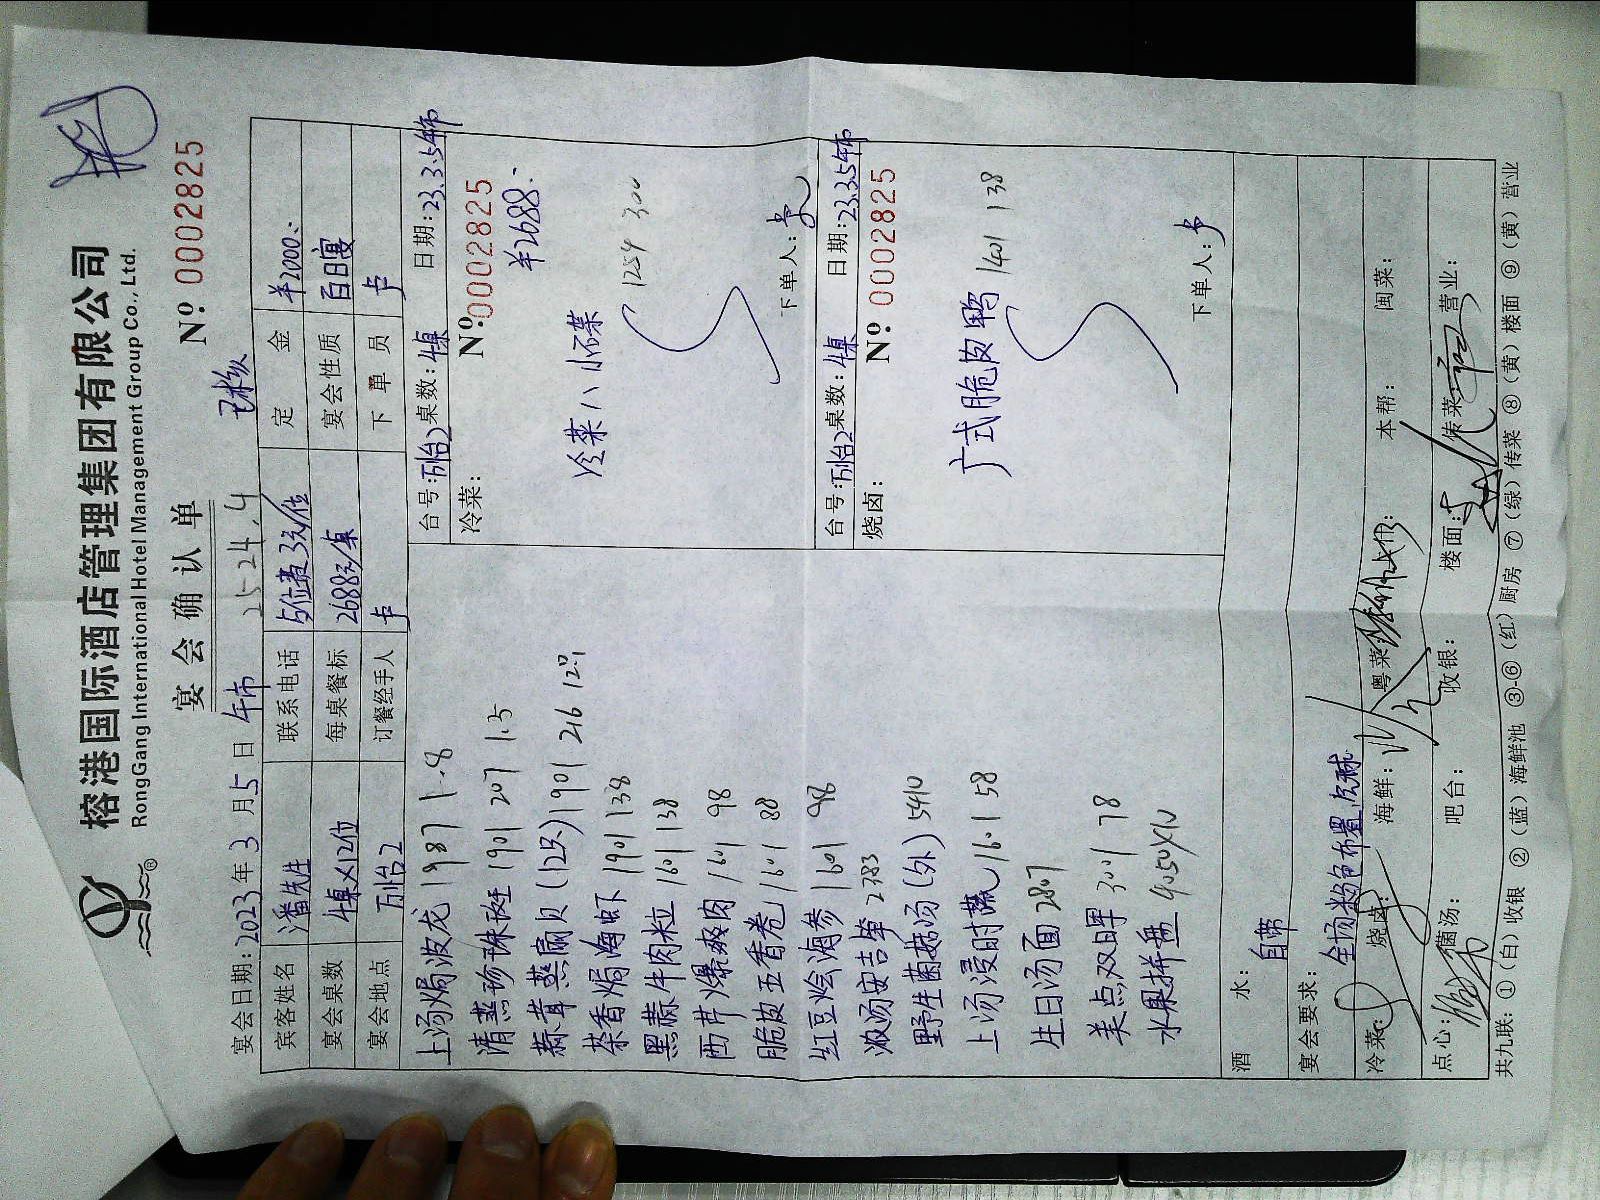 榕港国际酒店管理集团有限公司
RongGang International Hotel Management Group Co., Ltd.
宴会确认单
№ 0002825
宴会日期:2023年3月5日 午市 25-24.4
宾客姓名 潘先生 联系电话 5位费3元/位 定金 ¥2000.-
宴会桌数 4桌×12位 每桌餐标 2688元/桌 宴会性质 百日宴
宴会地点 订餐经手人 卢 下单员 卢
上汤焗波龙 1987 1.8
清蒸珍珠斑 1901 207 1.5
蒜茸蒸扇贝(12只) 1901 216 12只
茶香焗海虾 1901 138
黑蒜牛肉粒 1601 138
西芹爆爽肉 1601 98
脆皮五香卷 1601 88
红豆烩海参 1601 98
浓汤安吉笋 2383
野生菌菇汤(外) 5410
上汤浸时蔬 1601 58
生日汤面 2807
美点双辉 3001 78
水果拼盘 4050×1V
台号: 桌数:4桌 日期:23.3.5午市
冷菜: № 0002825
¥2688.-
冷菜八小碟 1254 300
下单人:
台号: 桌数:4桌 日期:23.3.5午市
烧卤: № 0002825
广式脆皮鸭 1401 138
下单人:
酒水: 自带
宴会要求: 全场粉色布置
冷菜: 烧卤: 海鲜: 粤菜: 本帮: 闽菜:
点心: 菌汤: 吧台: 收银: 楼面: 传菜: 营业:
共九联: ①(白)收银 ②(蓝)海鲜池 ③-⑥(红)厨房 ⑦(绿)传菜 ⑧(黄)楼面 ⑨(黄)营业